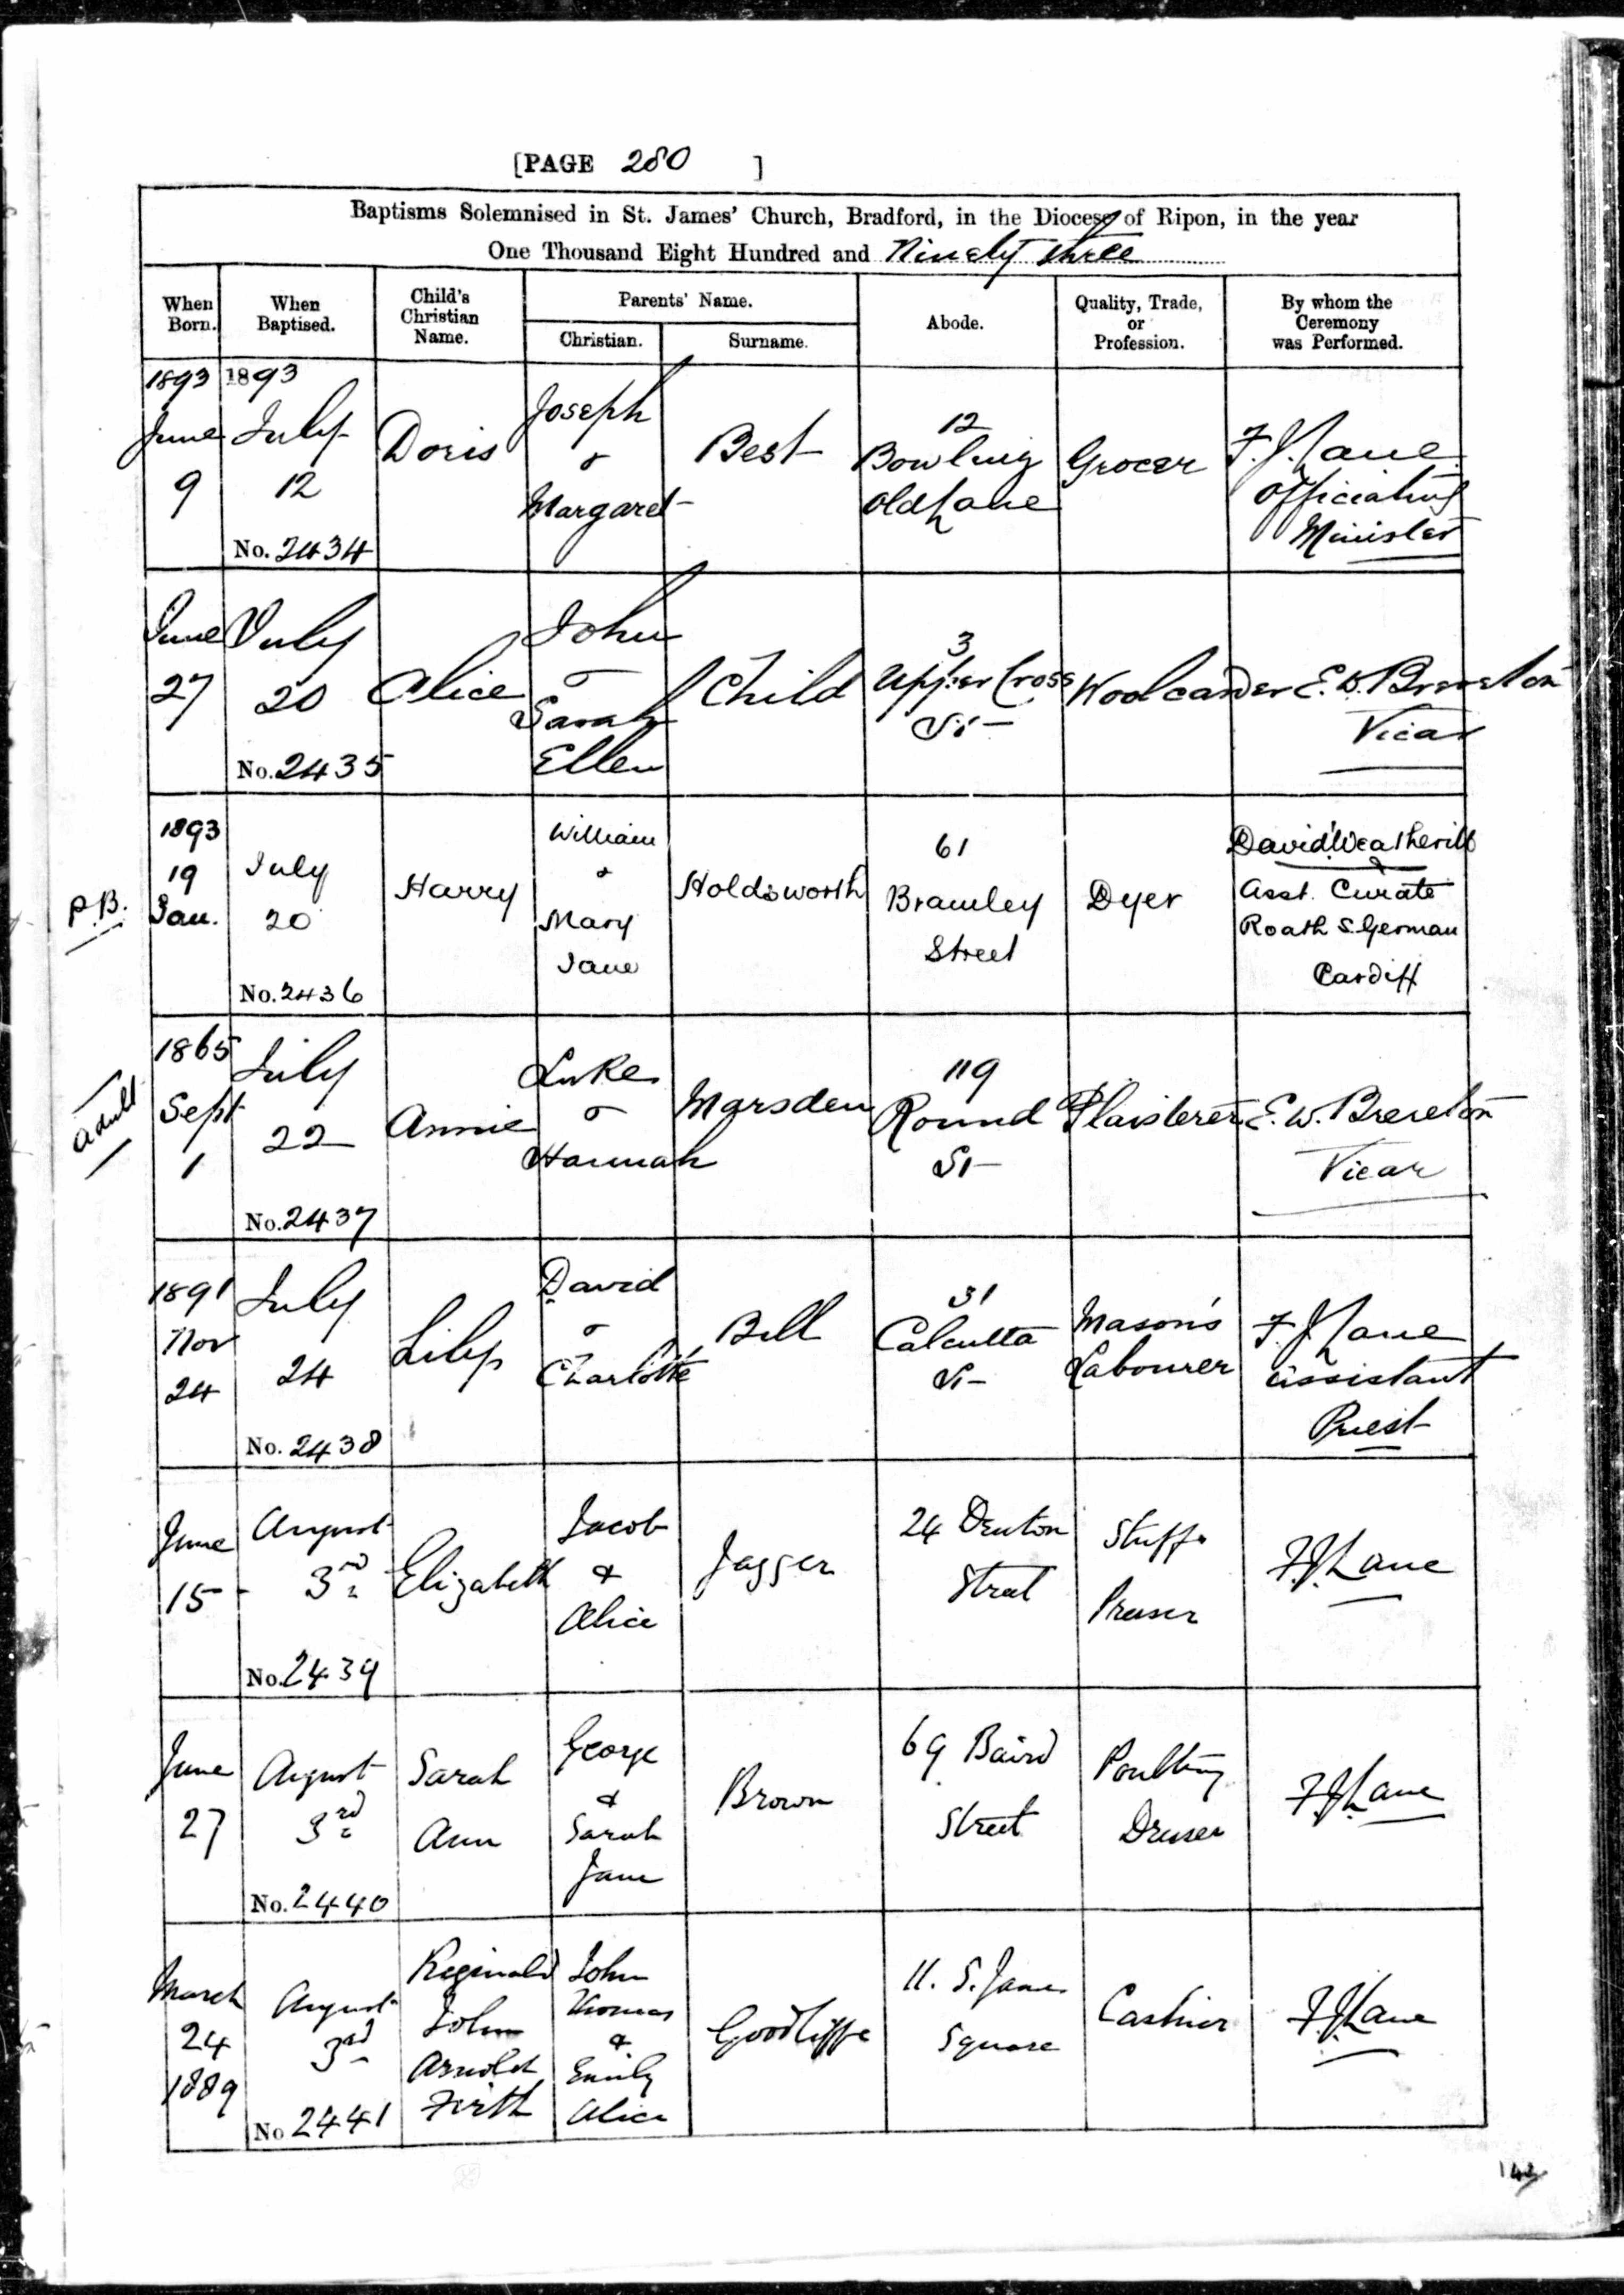 [PAGE 280 ]
Baptisms Solemnised in St. James' Church, Bradford, in the Diocese of Ripon, in the year
One Thousand Eight Hundred and Ninety three
When Born.
When Baptised.
Child's Christian Name.
Parents' Name.
Christian.
Surname.
Abode.
Quality, Trade, or Profession.
By whom the Ceremony was Performed.
1893
June
9
1893
July
12
No. 2434
Doris
Joseph
&
Margaret
Best
12
Bowling
Old Lane
Grocer
F. J. Lane
Officiating
Minister
June
27
July
20
No. 2435
Alice
John
&
Sarah
Ellen
Child
3
Upper Cross
St
Woolcarder
E. W. Brereton
Vicar
P.B.
1893
19
Jan.
July
20
No. 2436
Harry
William
&
Mary
Jane
Holdsworth
61
Bramley
Street
Dyer
David Weatherill
Asst. Curate
Roath S. German
Cardiff
Adult
1865
Sept
1
July
22
No. 2437
Annie
Luke
&
Hannah
Marsden
119
Round
St
Plaisterer
E. W. Brereton
Vicar
1891
Nov
24
July
24
No. 2438
Lily
David
&
Charlotte
Bell
31
Calcutta
St
Mason's
Labourer
F. J. Lane
Assistant
Priest
June
15
August
3rd
No. 2439
Elizabeth
Jacob
&
Alice
Jagger
24 Denton
Street
Stuff
Presser
F. J. Lane
June
27
August
3rd
No. 2440
Sarah
Ann
George
&
Sarah
Jane
Brown
69 Baird
Street
Poultry
Dresser
F. J. Lane
March
24
1889
August
3rd
No 2441
Reginald
John
Arnold
Firth
John
Thomas
&
Emily
Alice
Goodliffe
11. S. James
Square
Cashier
F. J. Lane